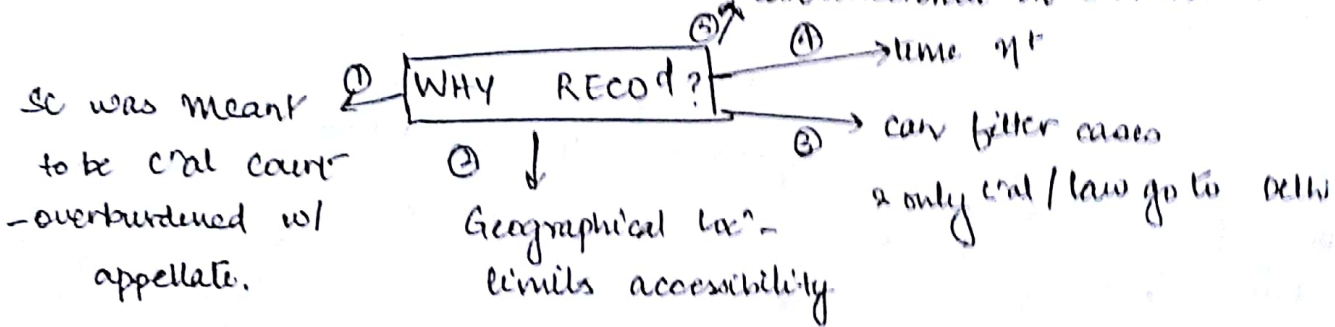 ⑤
WHY RECOd?
① SC was meant
to be c'nal court
- overburdened w/
appellate.
②
Geographical locn -
limits accessibility
④ time mt
③ can filter cases
& only c'nal / law go to Delhi